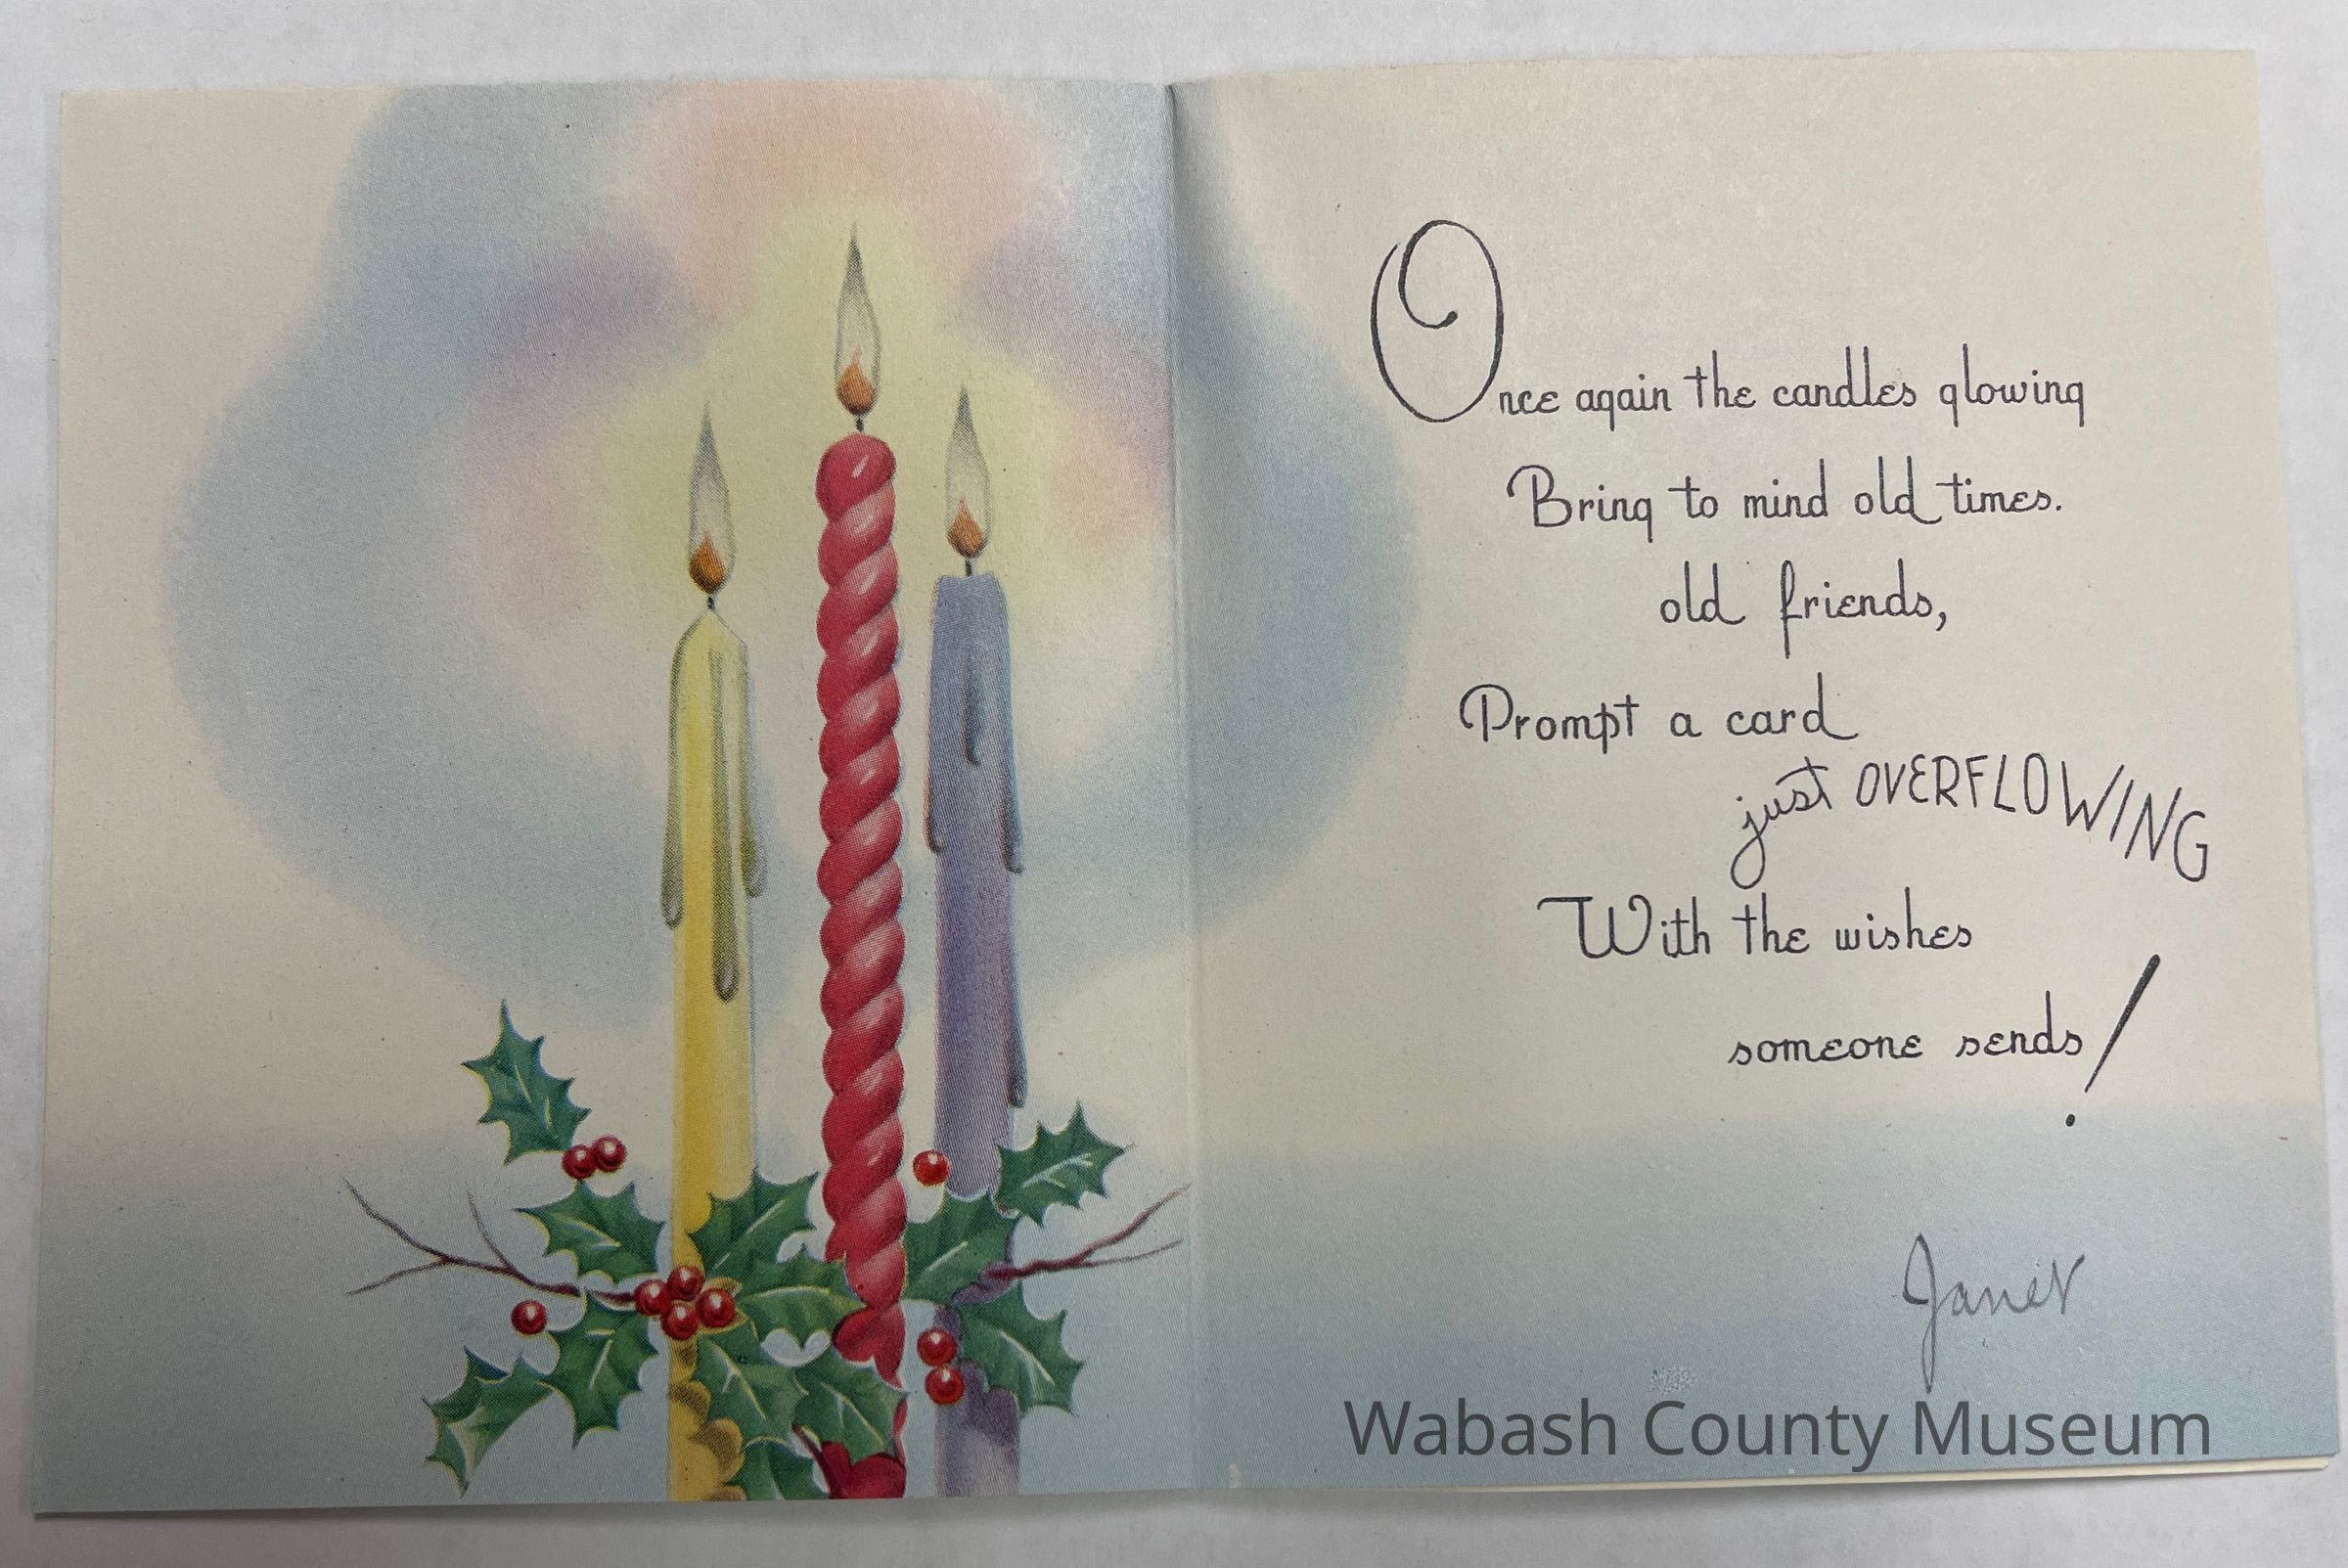 Once again the candles glowing
Bring to mind old times.
old friends,
Prompt a card
just OVERFLOWING
With the wishes
someone sends!
Janet
Wabash County Museum